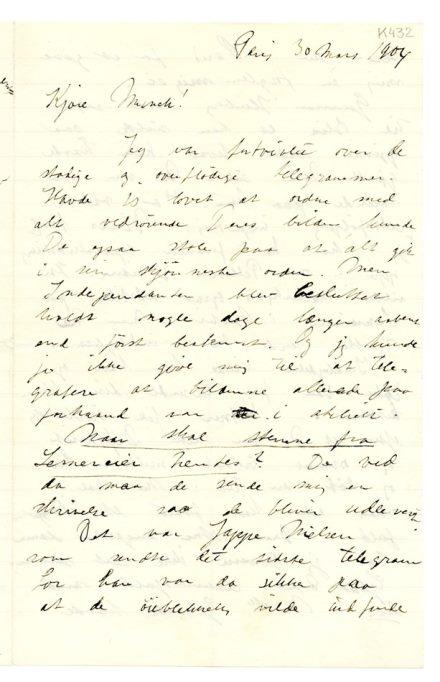 K432
Paris 30 Mars 1904
Kjære Munch!
Jeg var fortvivlet over de
stadige og overflødige telegrammer.
Havde lovet at ordne med
alt vedrørende Deres billeder kunde
De ogsaa stole paa at alt gik
i sin skjønneste orden. Men
Independanten blev besluttet
holdt nogle dage længer aabent
end først bestemt. Og jeg kunde
jo ikke give mig til at tele-
grafere at billederne allerede paa
forhaand var i
Naar skal stenene fra
Lemercier hentes? De ved
da maa de sende mig en
skrivelse saa de bliver udleveret.
Det var Jappe Nielsen
som sendte det sidste telegram
for han var da sikker paa
at de øieblikkelig vilde indfinde